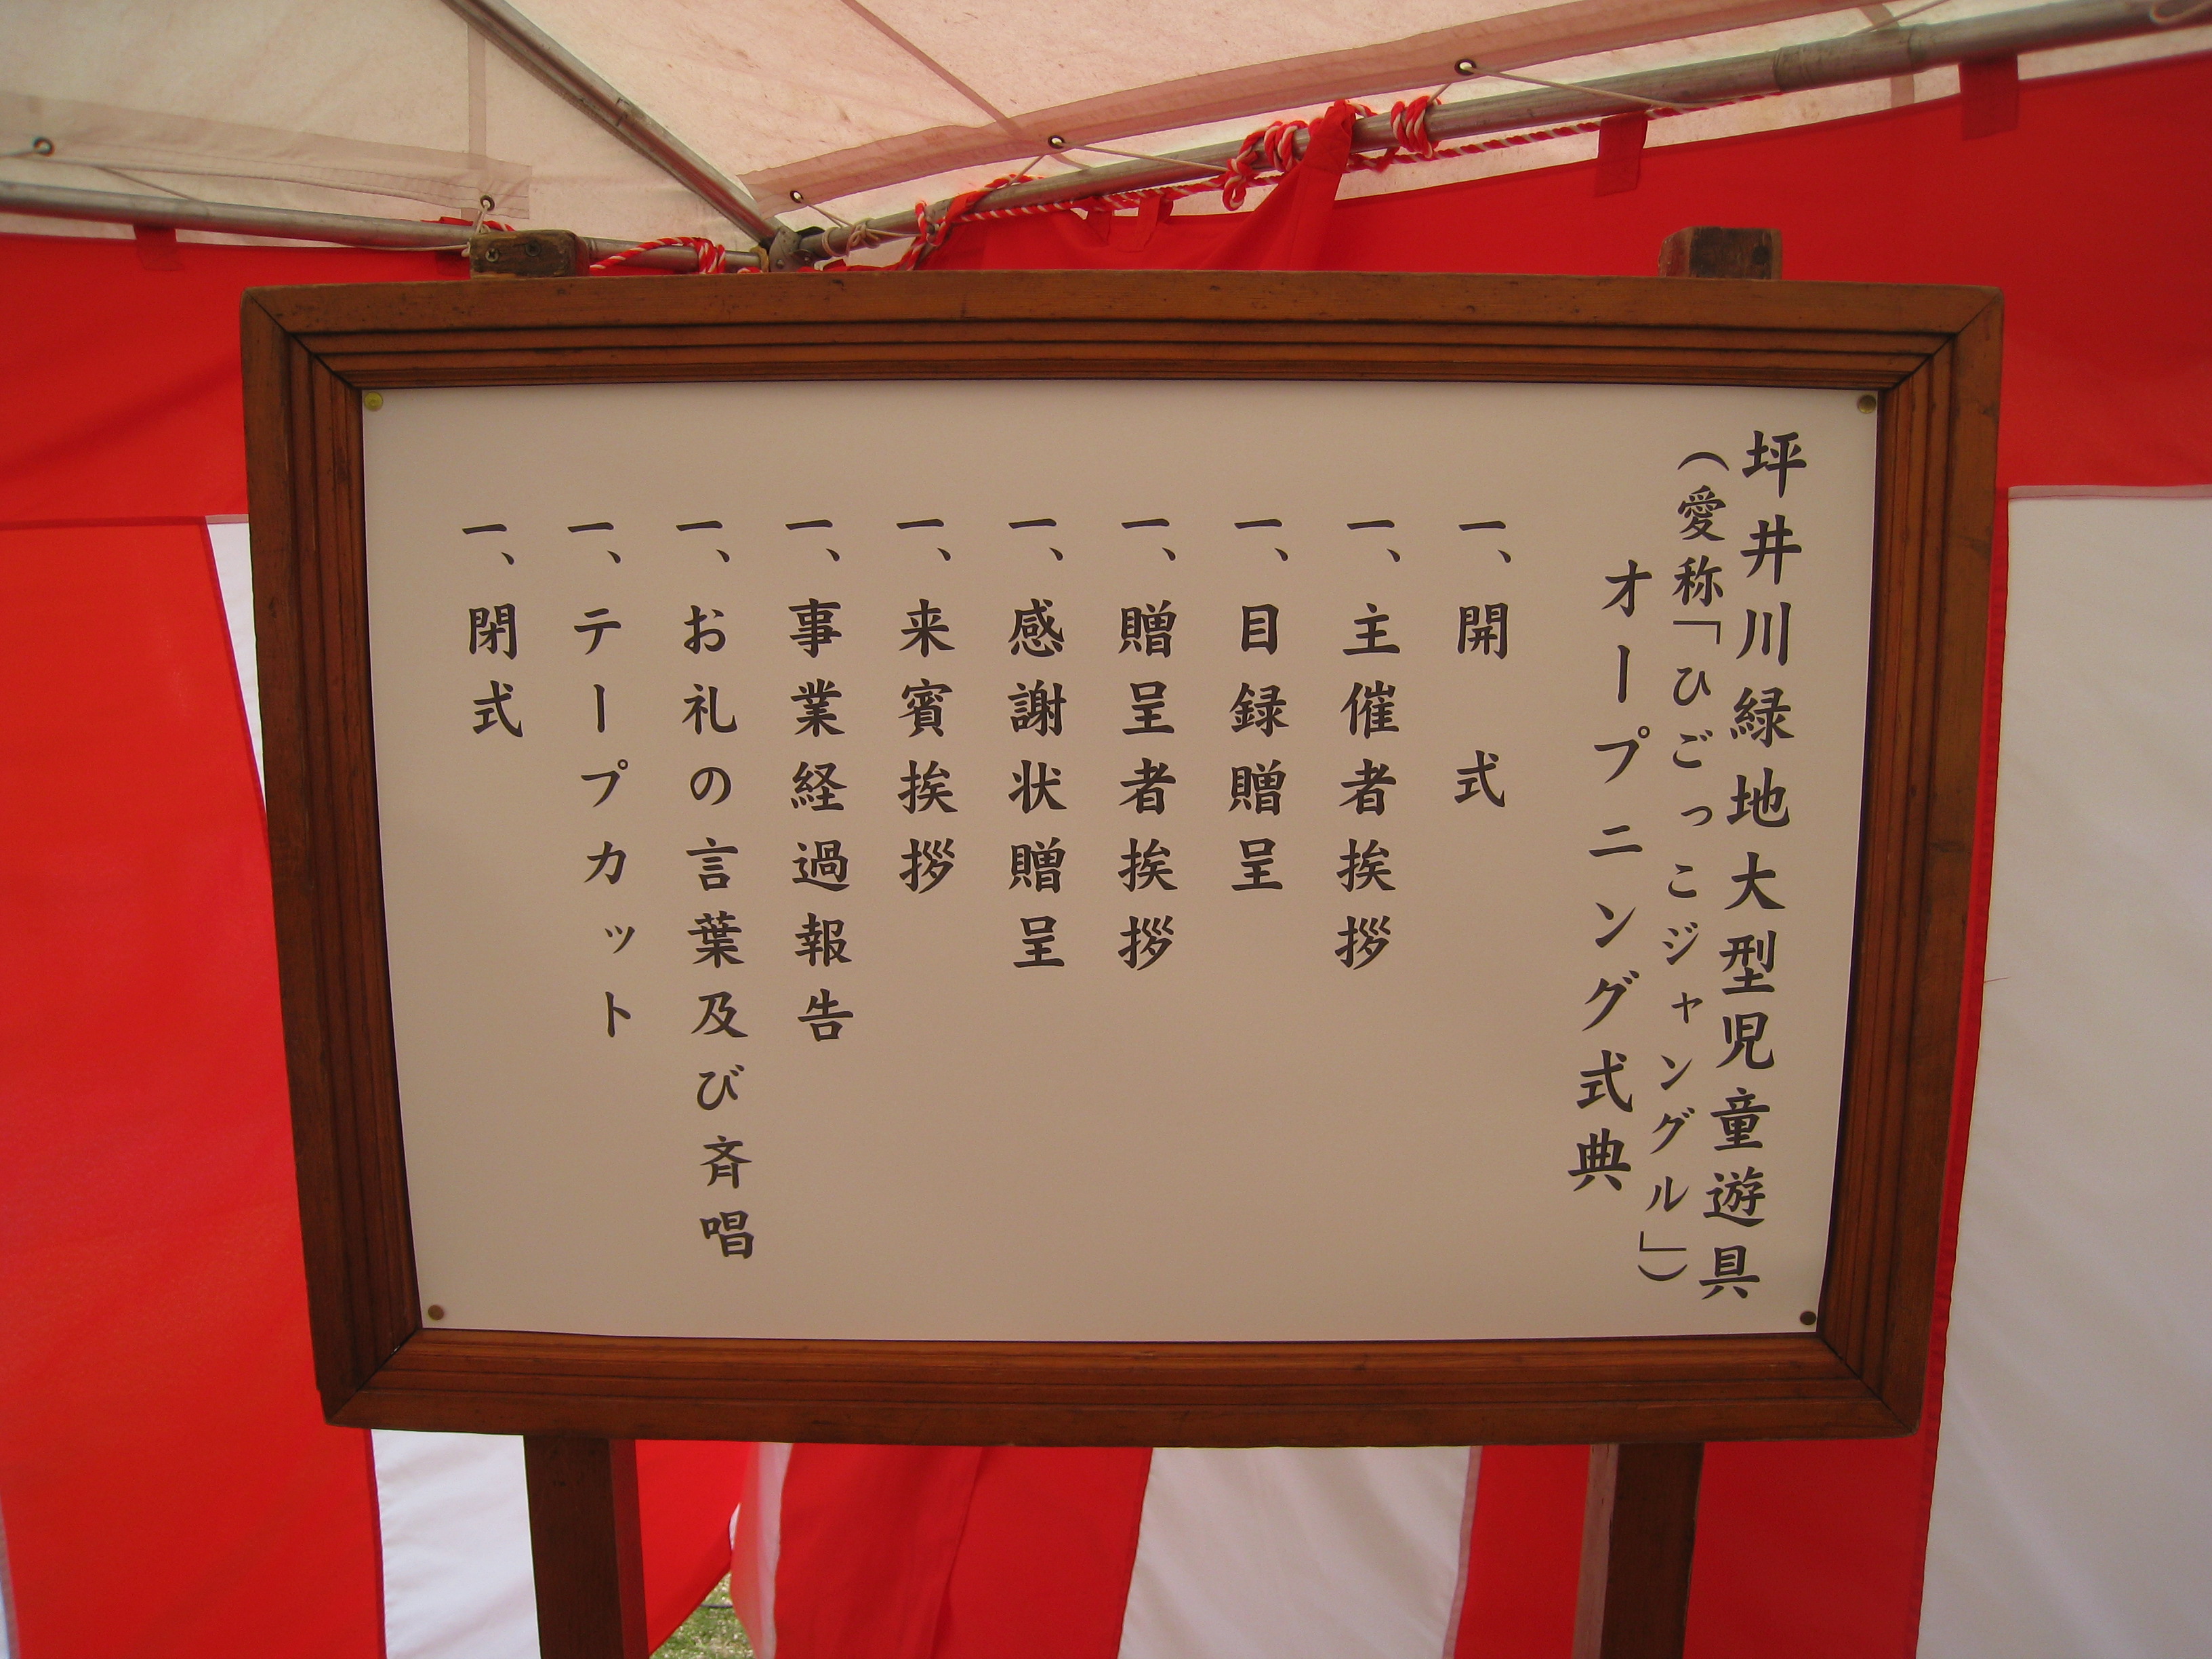 坪井川緑地大型児童遊具
（愛称「ひごっこジャングル」）
オープニング式典
一、開　式
一、主催者挨拶
一、目録贈呈
一、贈呈者挨拶
一、感謝状贈呈
一、来賓挨拶
一、事業経過報告
一、お礼の言葉及び斉唱
一、テープカット
一、閉式